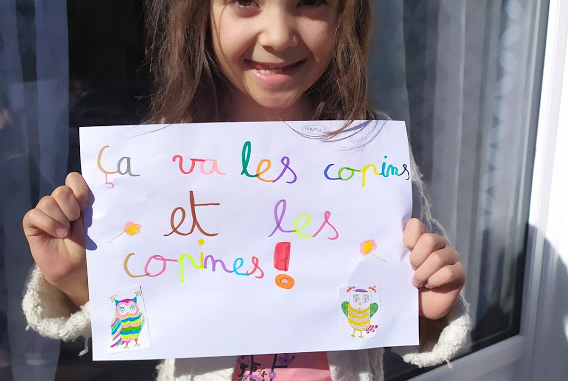 Ça va les copins
et les
copines!